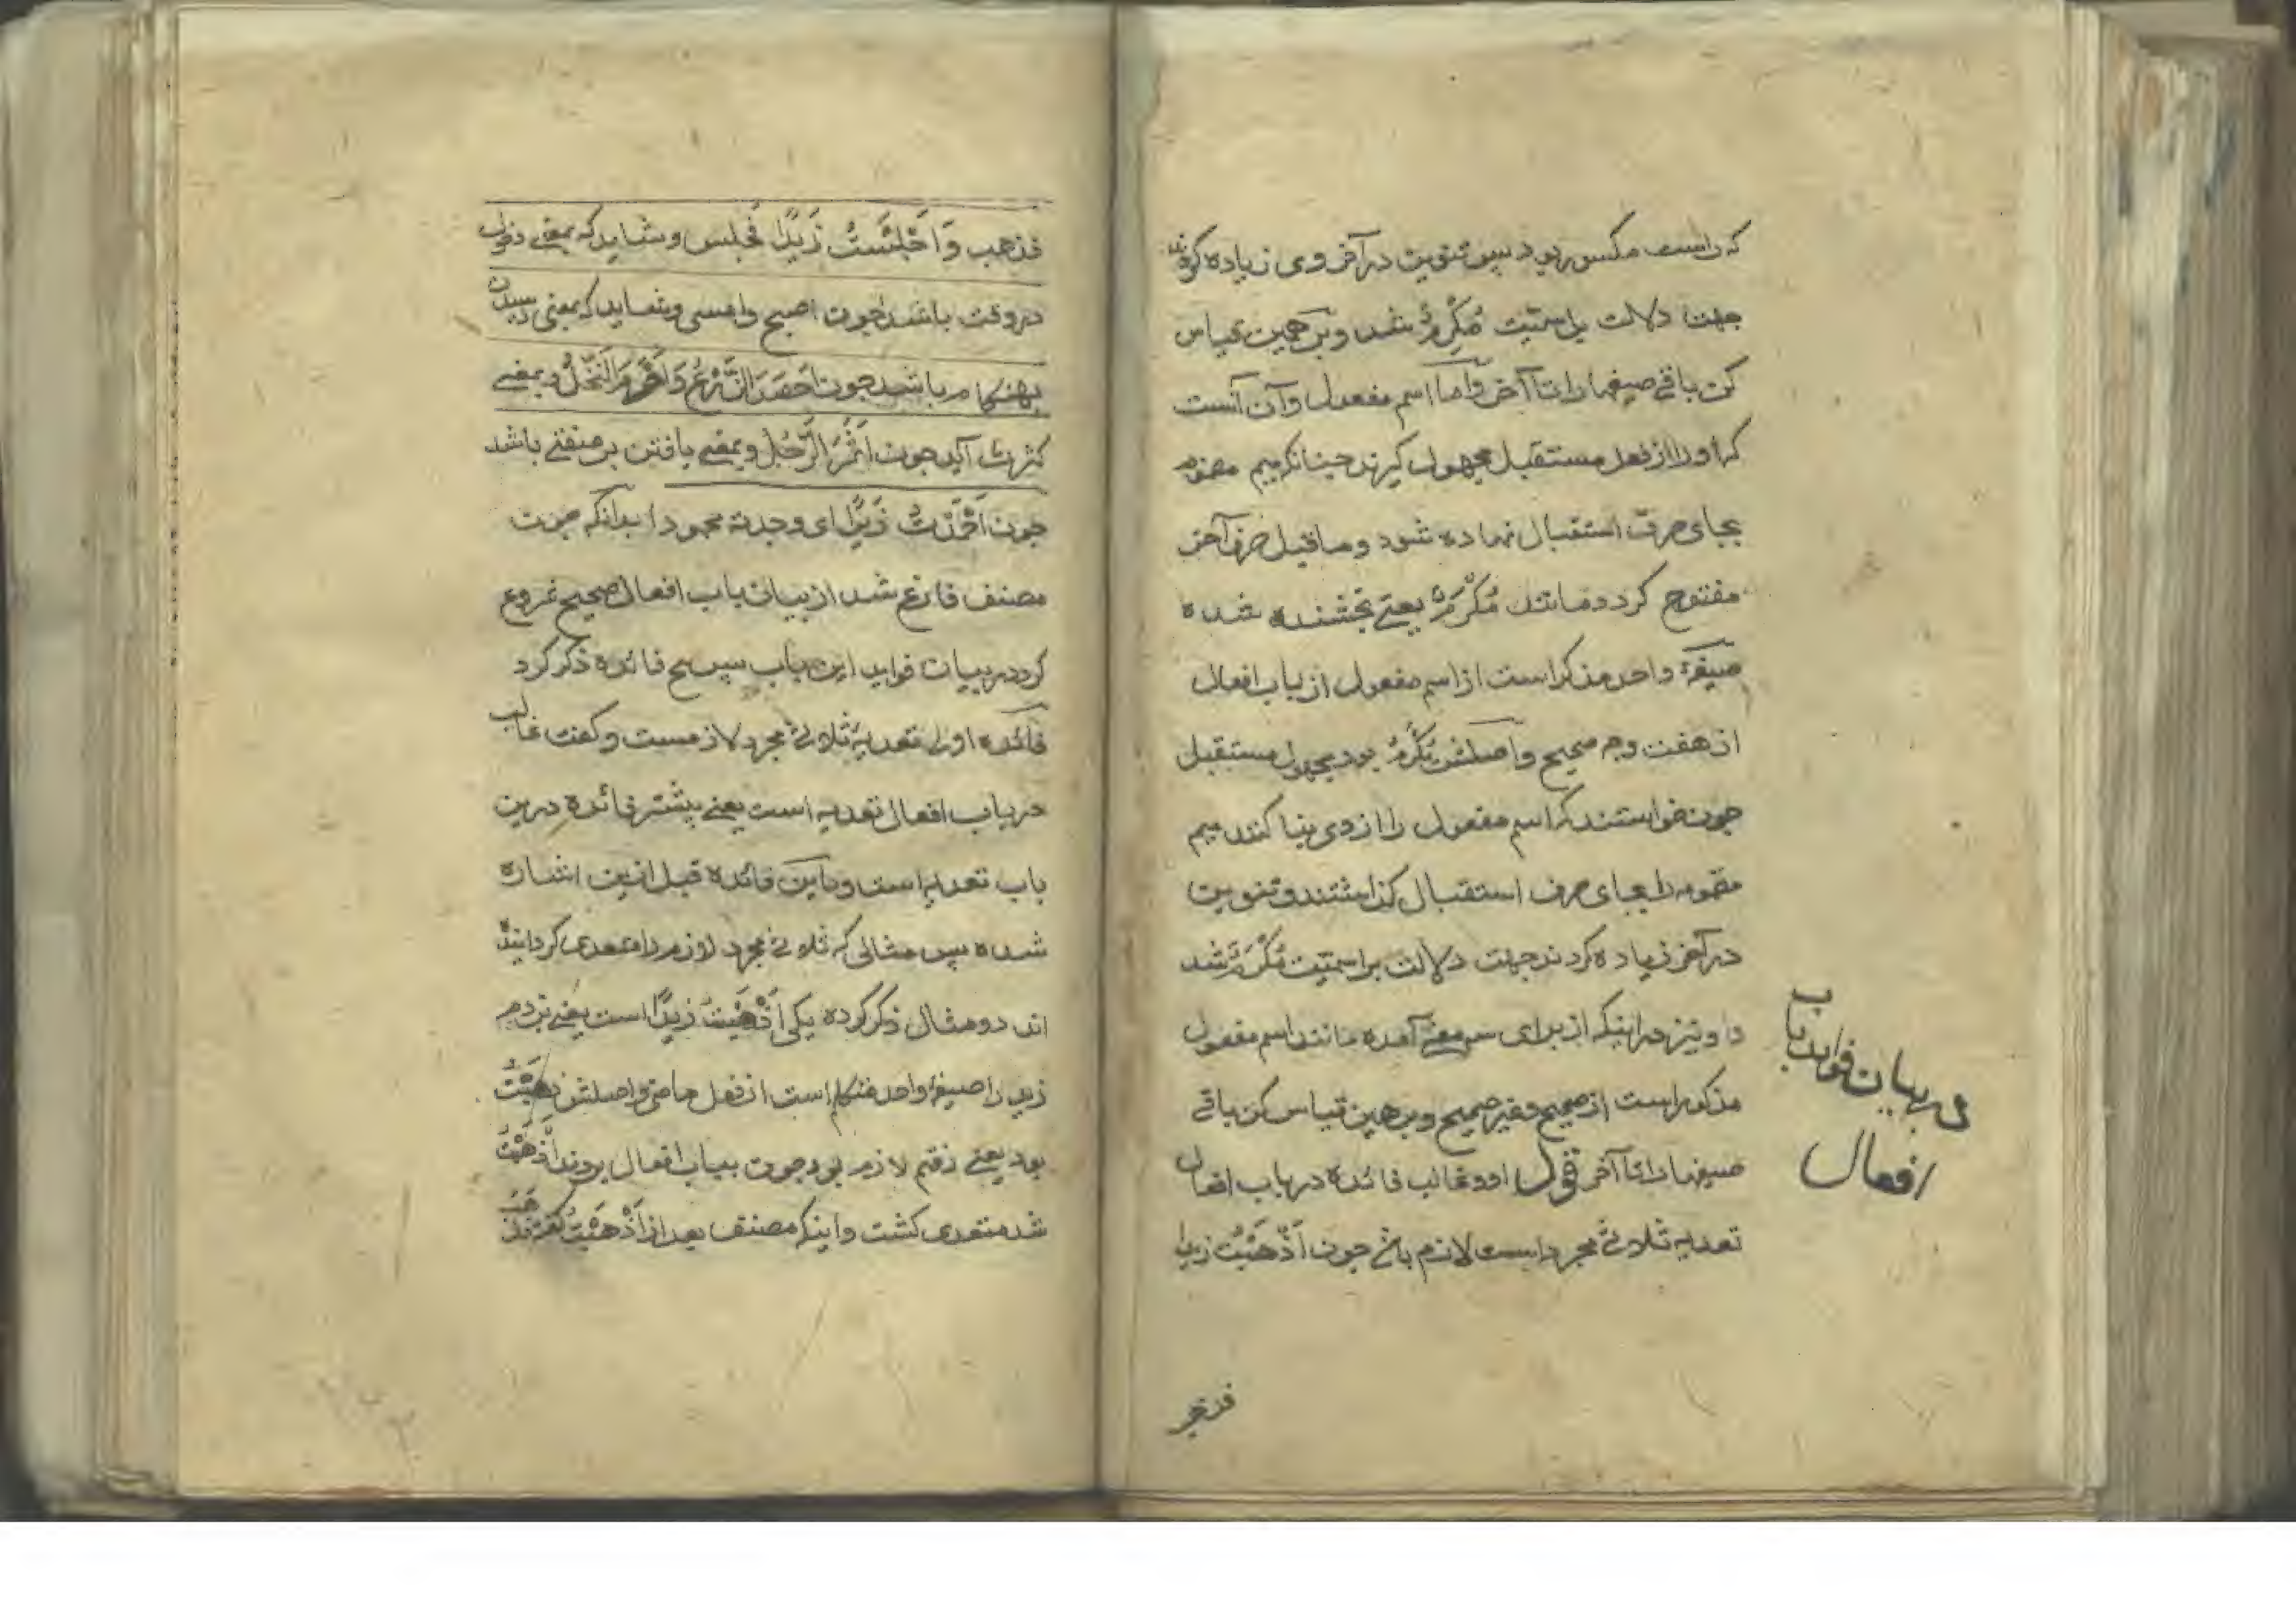 که راست مکسور بود پس تنوین در آخر وی زیاده کردند
جهت دلالت بر اسمیّت مُکْرِمٌ شد و بر همین قیاس
کن باقی صیغها را تا آخر وامّا اسم مفعول و آن آنست
که او را از فعل مستقبل مجهول کیرند چنانکه میم مضموم
بجای حرف استقبال نهاده شود و ماقبل حرف آخر
مفتوح کردد مانند مُکْرَمٌ یعنی بخشنده شده
صیغهٔ واحد مذکر است از اسم مفعول از باب افعال
از هفت وجه صحیح و اصلش یُکْرَمُ بود مجهول مستقبل
چون خواستند که اسم مفعول را از وی بنا کنند میم
مضمومه را بجای حرف استقبال کذاشتند و تنوین
در آخر زیاده کردند جهت دلالت بر اسمیّت مُکْرَمٌ شد
و نیز در اینکه از برای سه معنی آمده مانند اسم مفعول
مذکور است از صحیح و غیر صحیح و بر همین قیاس کن باقی
صیغها را تا آخر قوله وغالب فائده در باب افعال
تعدیه ثلاثی مجرد است لازم باشد چون اَذْهَبْتُ زیدا
در بیان فواید باب
افعال
فذهب وَاَجْلَسْتُ زَیْدًا فَجلس و شاید که بمعنی دخول
در وقت باشد چون اصبح وامسی و شاید که بمعنی رسیدن
بهنکام باشد چون اَحْصَدَ الزَّرْعُ وَاَصْرَمَ النَّخْلُ و بمعنی
کثرت آید چون اَثْمَرَ الرَّجُلُ و بمعنی یافتن بر صفتی باشد
چون اَحْمَدْتُ زَیْدًا ای وجدته محمودا بدانکه چون
مصنف فارغ شد از بیان باب افعال صحیح شروع
کرد در بیان فواید این باب پس پنج فائده ذکر کرد
فائده اول تعدیهٔ ثلاثی مجرد لازمست و کفت غالب
در باب افعال تعدیه است یعنی بیشتر فائده درین
باب تعدیه است و باین فائده قبل ازین اشاره
شده پس مثالی که ثلاثی مجرد لازم را متعدی کردانیده
اند دو مثال ذکر کرده یکی اَذْهَبْتُ زَیْدًا است یعنی بردم
زید را صیغهٔ واحد متکلم است از فعل ماضی و اصلش ذَهَبْتُ
بود یعنی رفتم لازم بود چون بباب افعال بردند اَذْهَبْتُ
شد متعدی کشت و اینکه مصنف بعد از اَذْهَبْتُ کفته فذهب